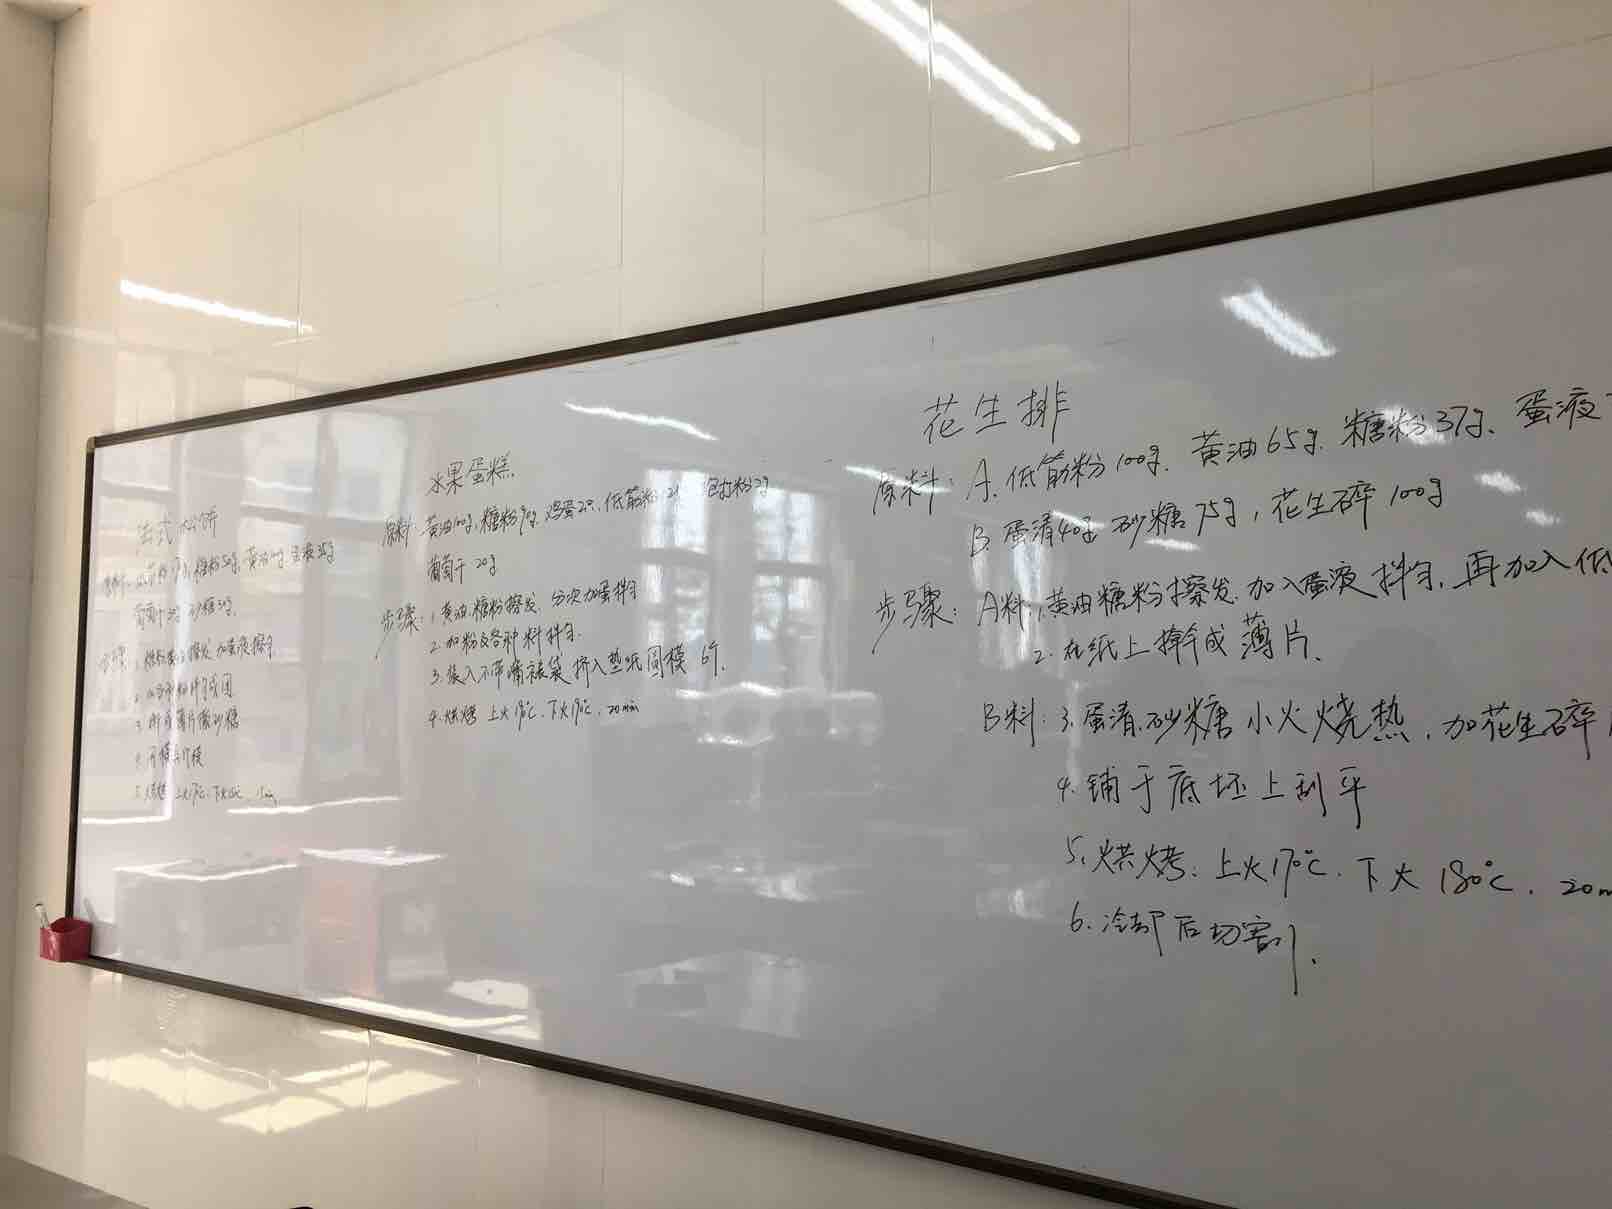 花生排
原料: A. 低筋粉100g. 黄油65g. 糖粉37g、蛋液
B. 蛋清40g 砂糖75g, 花生碎100g
步骤: A料: 1.黄油糖粉擦发. 加入蛋液拌匀. 再加入低
2. 在纸上擀成薄片.
B料: 3. 蛋清.砂糖小火烧热. 加花生碎
4. 铺于底坯上刮平
5. 烘烤. 上火170℃. 下火180℃. 20
6. 冷却后切割.
水果蛋糕.
原料: 黄油100g, 糖粉90g, 鸡蛋2只, 低筋粉 泡打粉2g
葡萄干20g
步骤: 1.黄油.糖粉擦发. 分次加蛋拌匀
2. 加粉及各种料拌匀.
3. 装入不带嘴裱袋挤入垫纸圆模6个.
4. 烘烤 上火190℃. 下火190℃. 20min
法式
糖粉50g, 黄油 蛋液35g
葡萄干 砂糖
步骤: 1. 擦发 加蛋液擦匀
2. 成团
3. 擀成薄片撒砂糖
4. 用模具
5. 烘烤 上火170℃. 下火